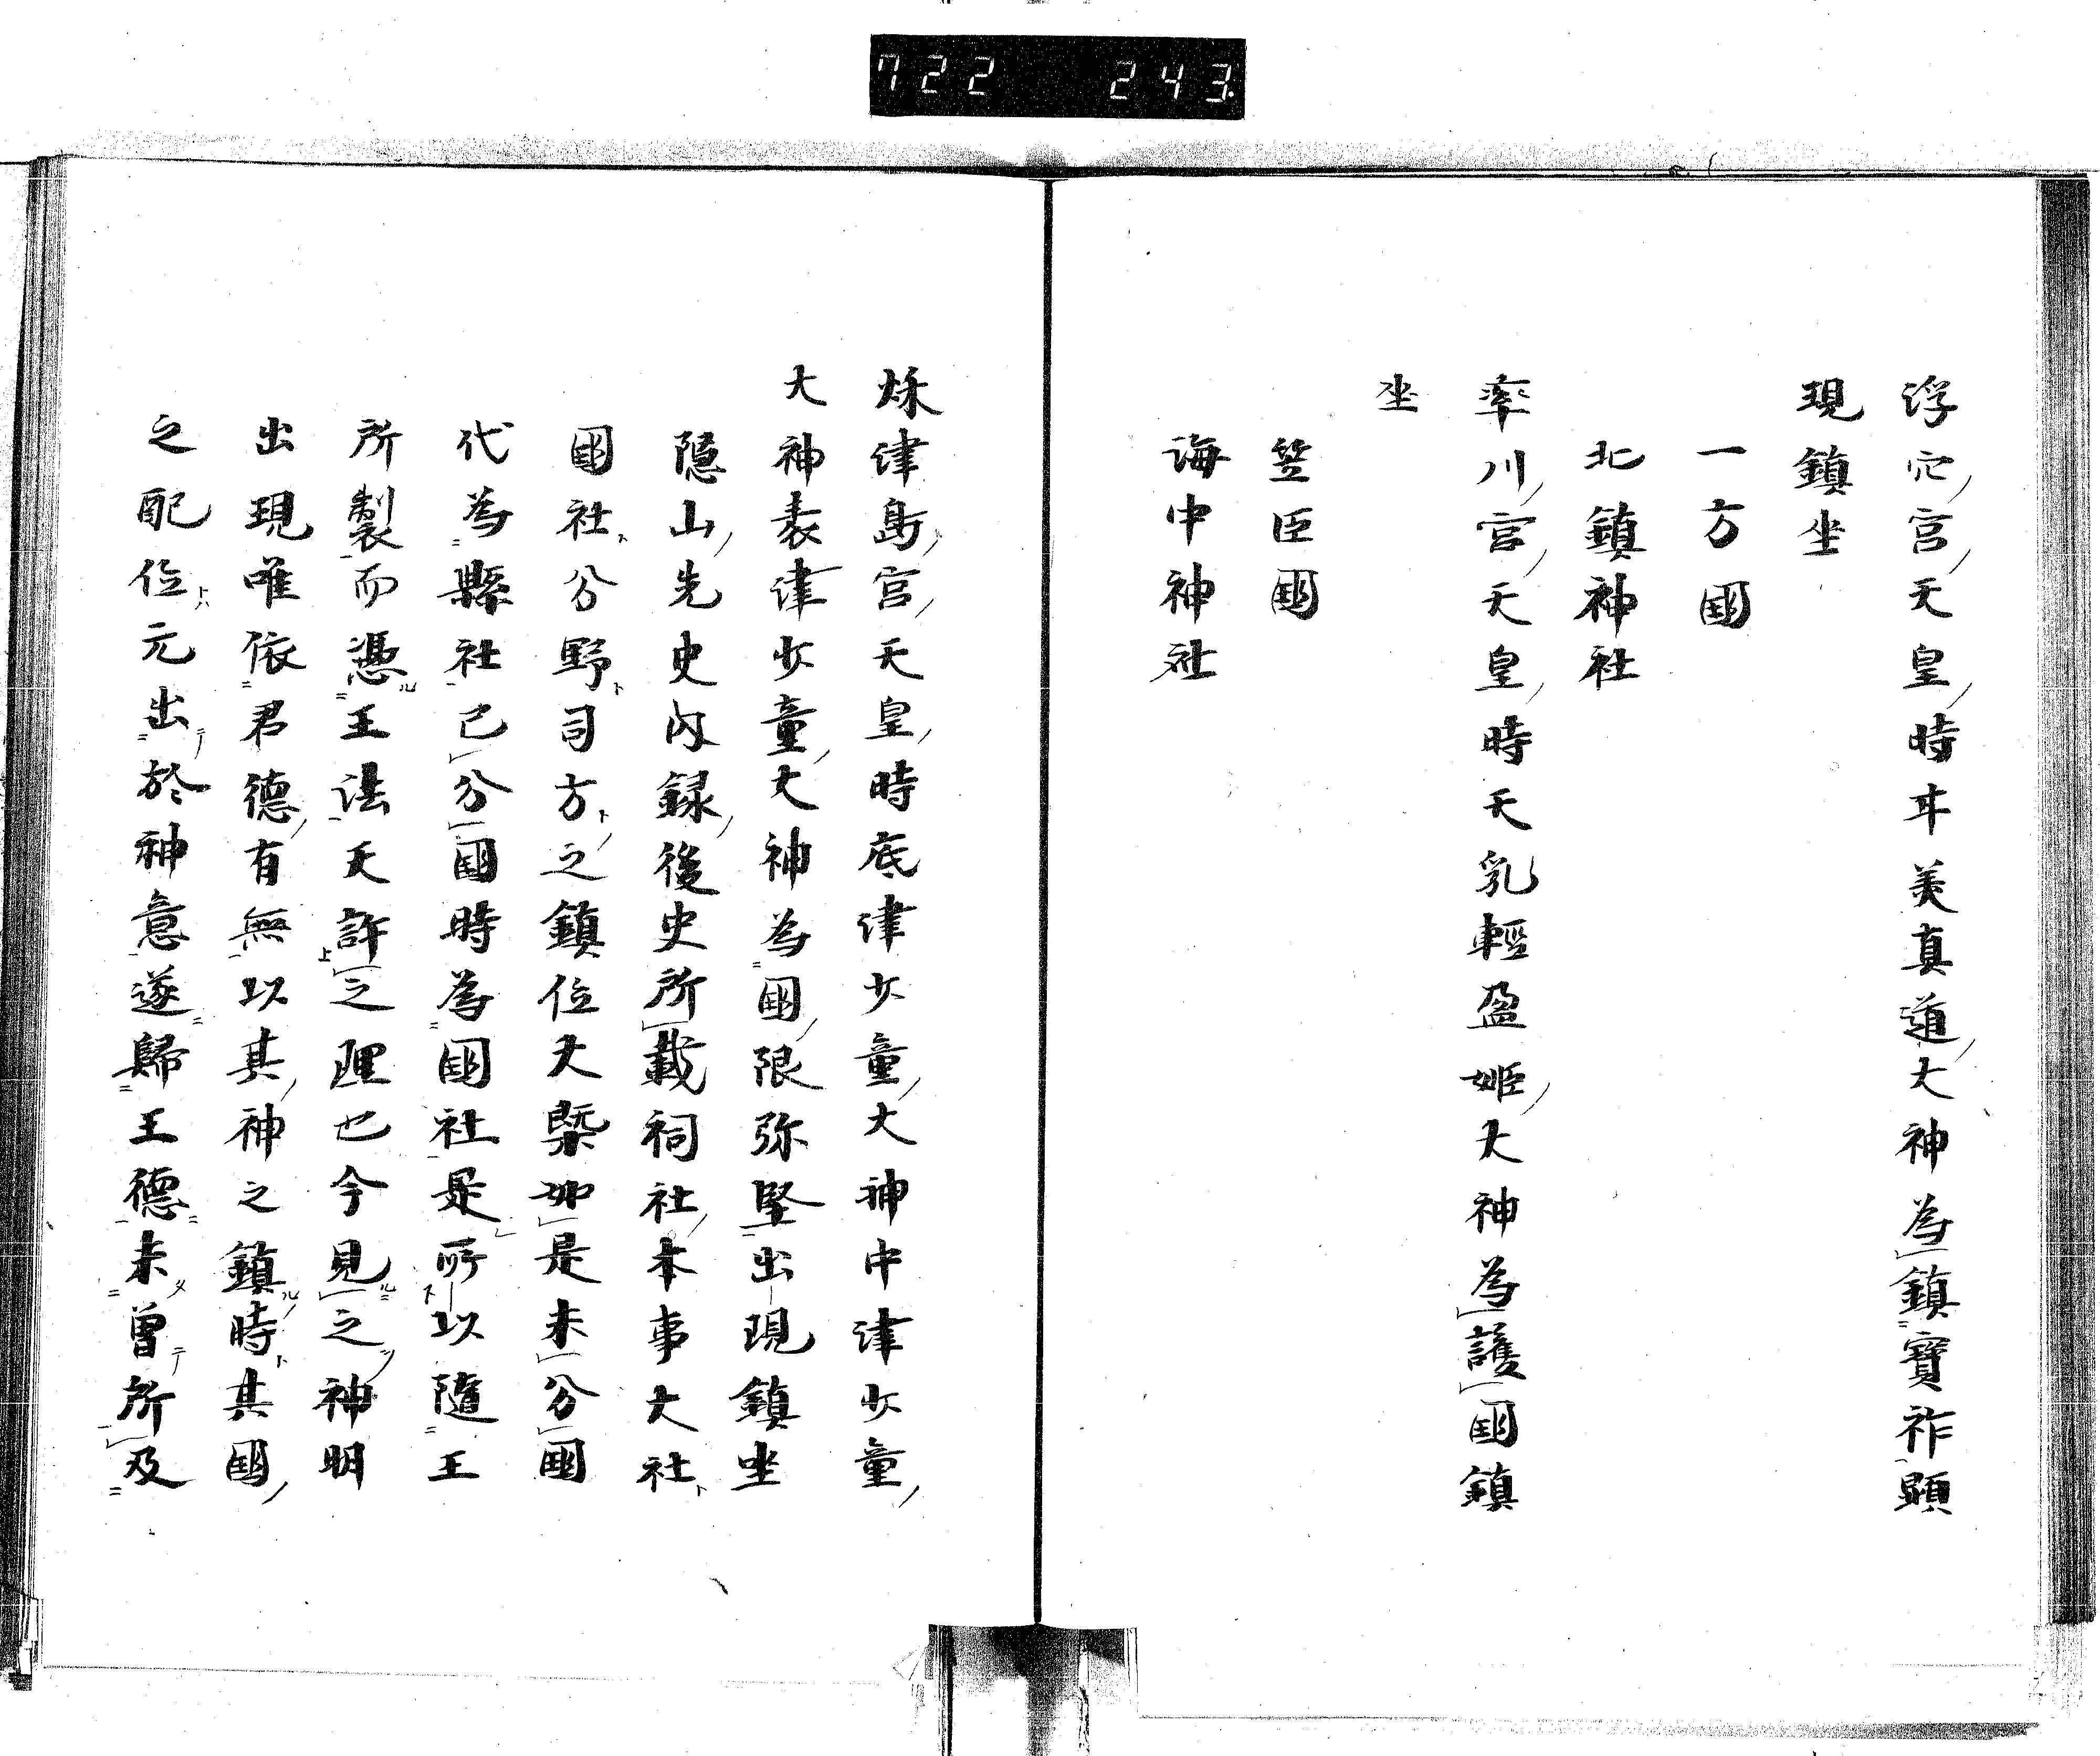 722 243
浮穴宮天皇時耳美真道大神為鎮寶祚顕
現鎮坐
一方國
北鎮神社
率川宮天皇時天乳輕盈姫大神為護國鎮
坐
笠臣國
海中神社
秌津島宮天皇時底津少童大神中津少童
大神表津少童大神為國限弥堅出現鎮坐
隠山先史内録後史所載祠社本事大社
國社分野司方之鎮位大槩如是未分國
代為縣社已分國時為國社是所以隨王
所製而憑王法天許之理也今見之神明
出現唯依君德有無以其神之鎮時其國
之配位元出於神意遂歸王德未曽所及